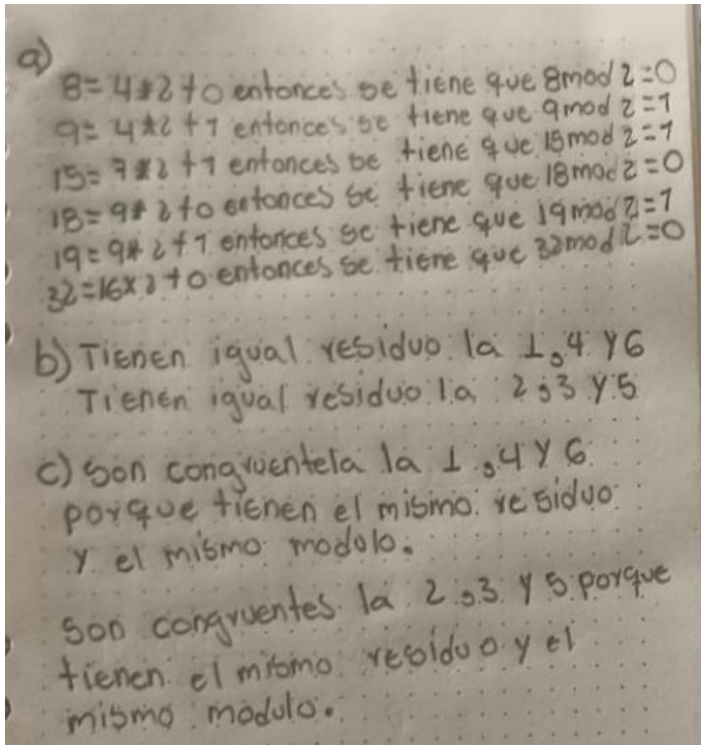 a)
8=4*2+0 entonces se tiene que 8mod 2=0
9=4*2+1 entonces se tiene que 9mod 2=1
15=7*2+1 entonces se tiene que 15mod 2=1
18=9*2+0 entonces se tiene que 18mod 2=0
19=9*2+1 entonces se tiene que 19mod 2=1
32=16x2+0 entonces se tiene que 32mod 2=0
b) Tienen igual residuo la 1,4 y 6
Tienen igual residuo la 2,3 y 5
c) son congruentela la 1,4 y 6
porque tienen el mismo residuo
y el mismo modulo.
son congruentes la 2,3 y 5 porque
tienen el mismo residuo y el
mismo modulo.